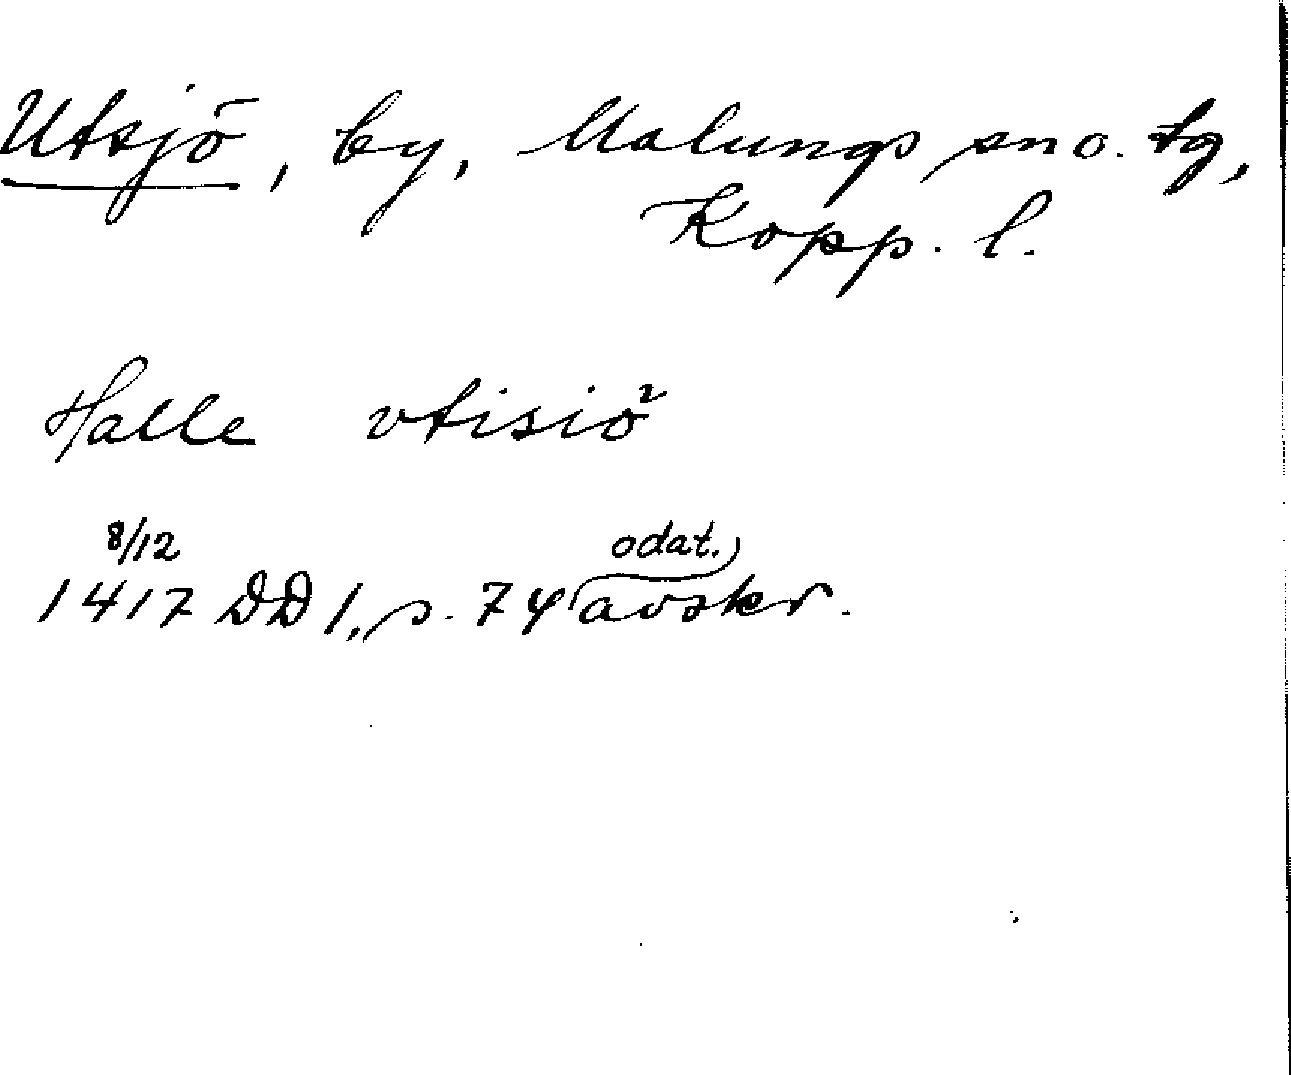 Utsjö, by, Malungs sn o. tg,
Kopp. l.
Halle vtisiö
8/12 odat.
1417 DD 1, s. 74 avskr.